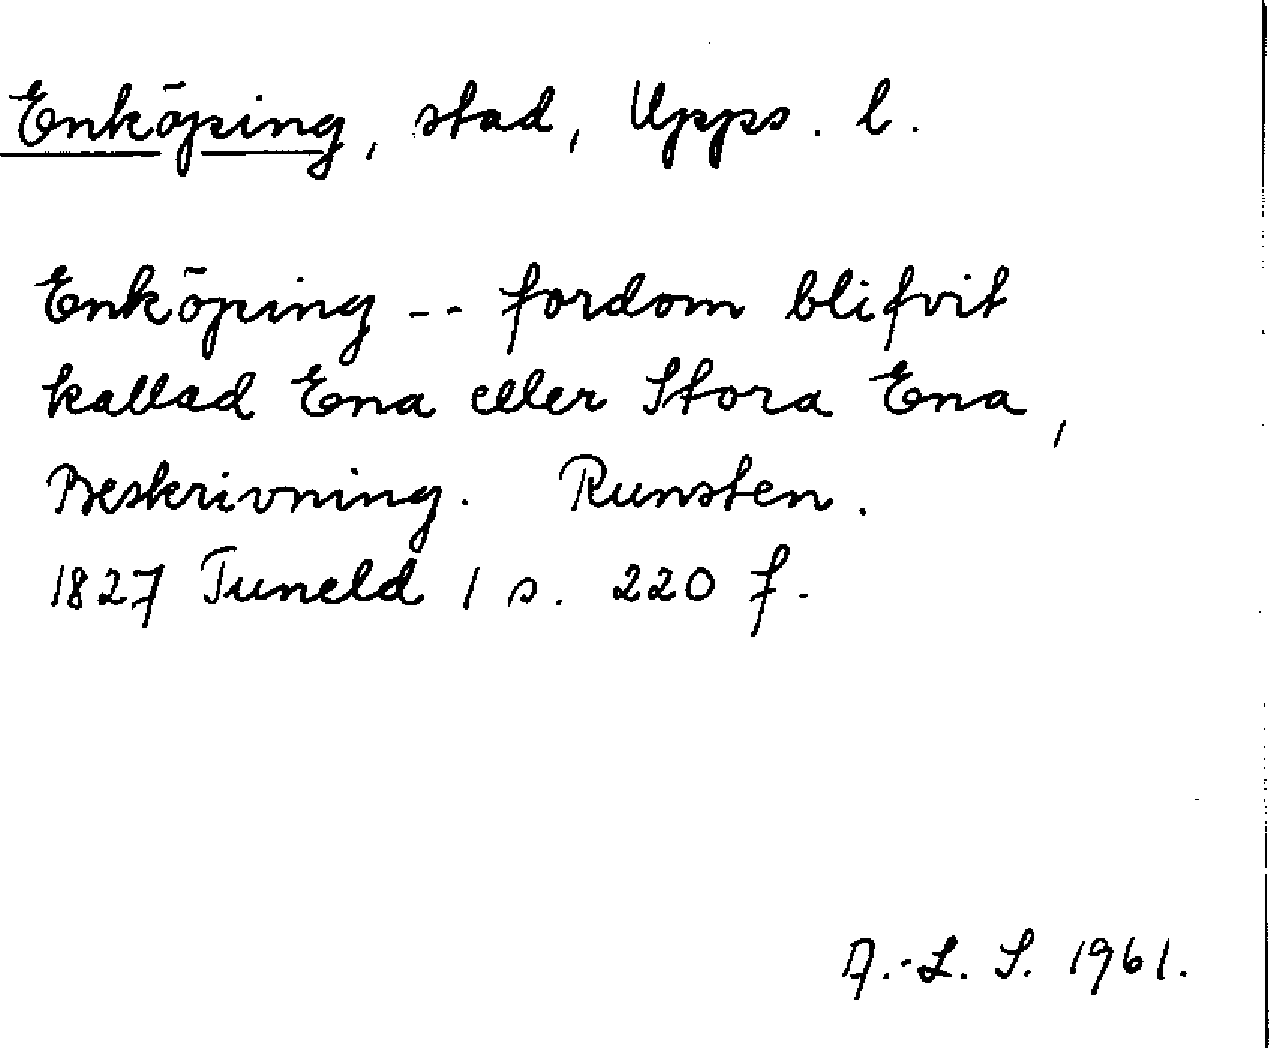 Enköping, stad, Upps. l.
Enköping -- fordom blifvit
kallad Ena eller Stora Ena,
Beskrivning. Runsten.
1827 Tuneld 1 s. 220 f.
A.-L. S. 1961.